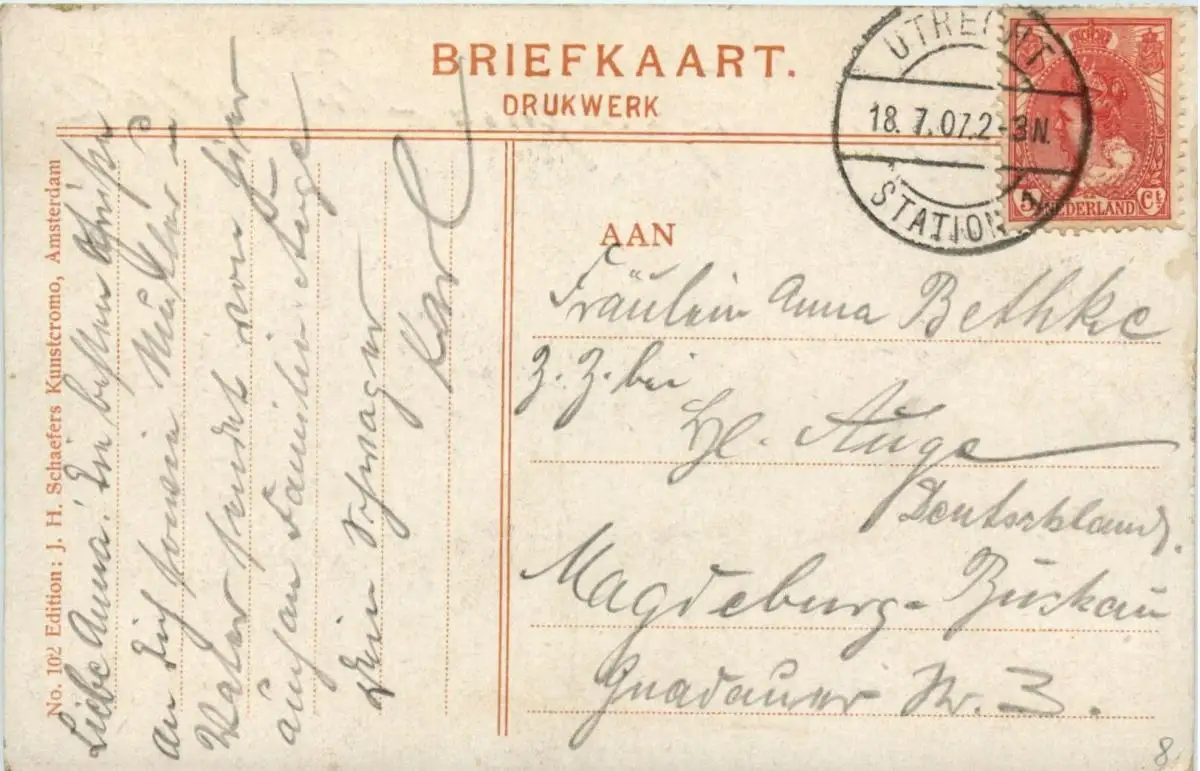 BRIEFKAART.
DRUKWERK
UTRECHT
18. 7. 07. 2-3N.
STATION
5 Ct NEDERLAND Ct
AAN
Fräulein Anna Bethke
z. Z. bei
Hl. Auge
Deutschland.
Magdeburg-Buckau
Gnadauer Str. 3.
Liebe Anna! Die besten Grüße
an Dich sowie Mutter u
Vater sendet von hier
auch an Familie Auge
Dein Schwager
Karl
No. 102 Edition: J. H. Schaefers Kunstcromo, Amsterdam
8